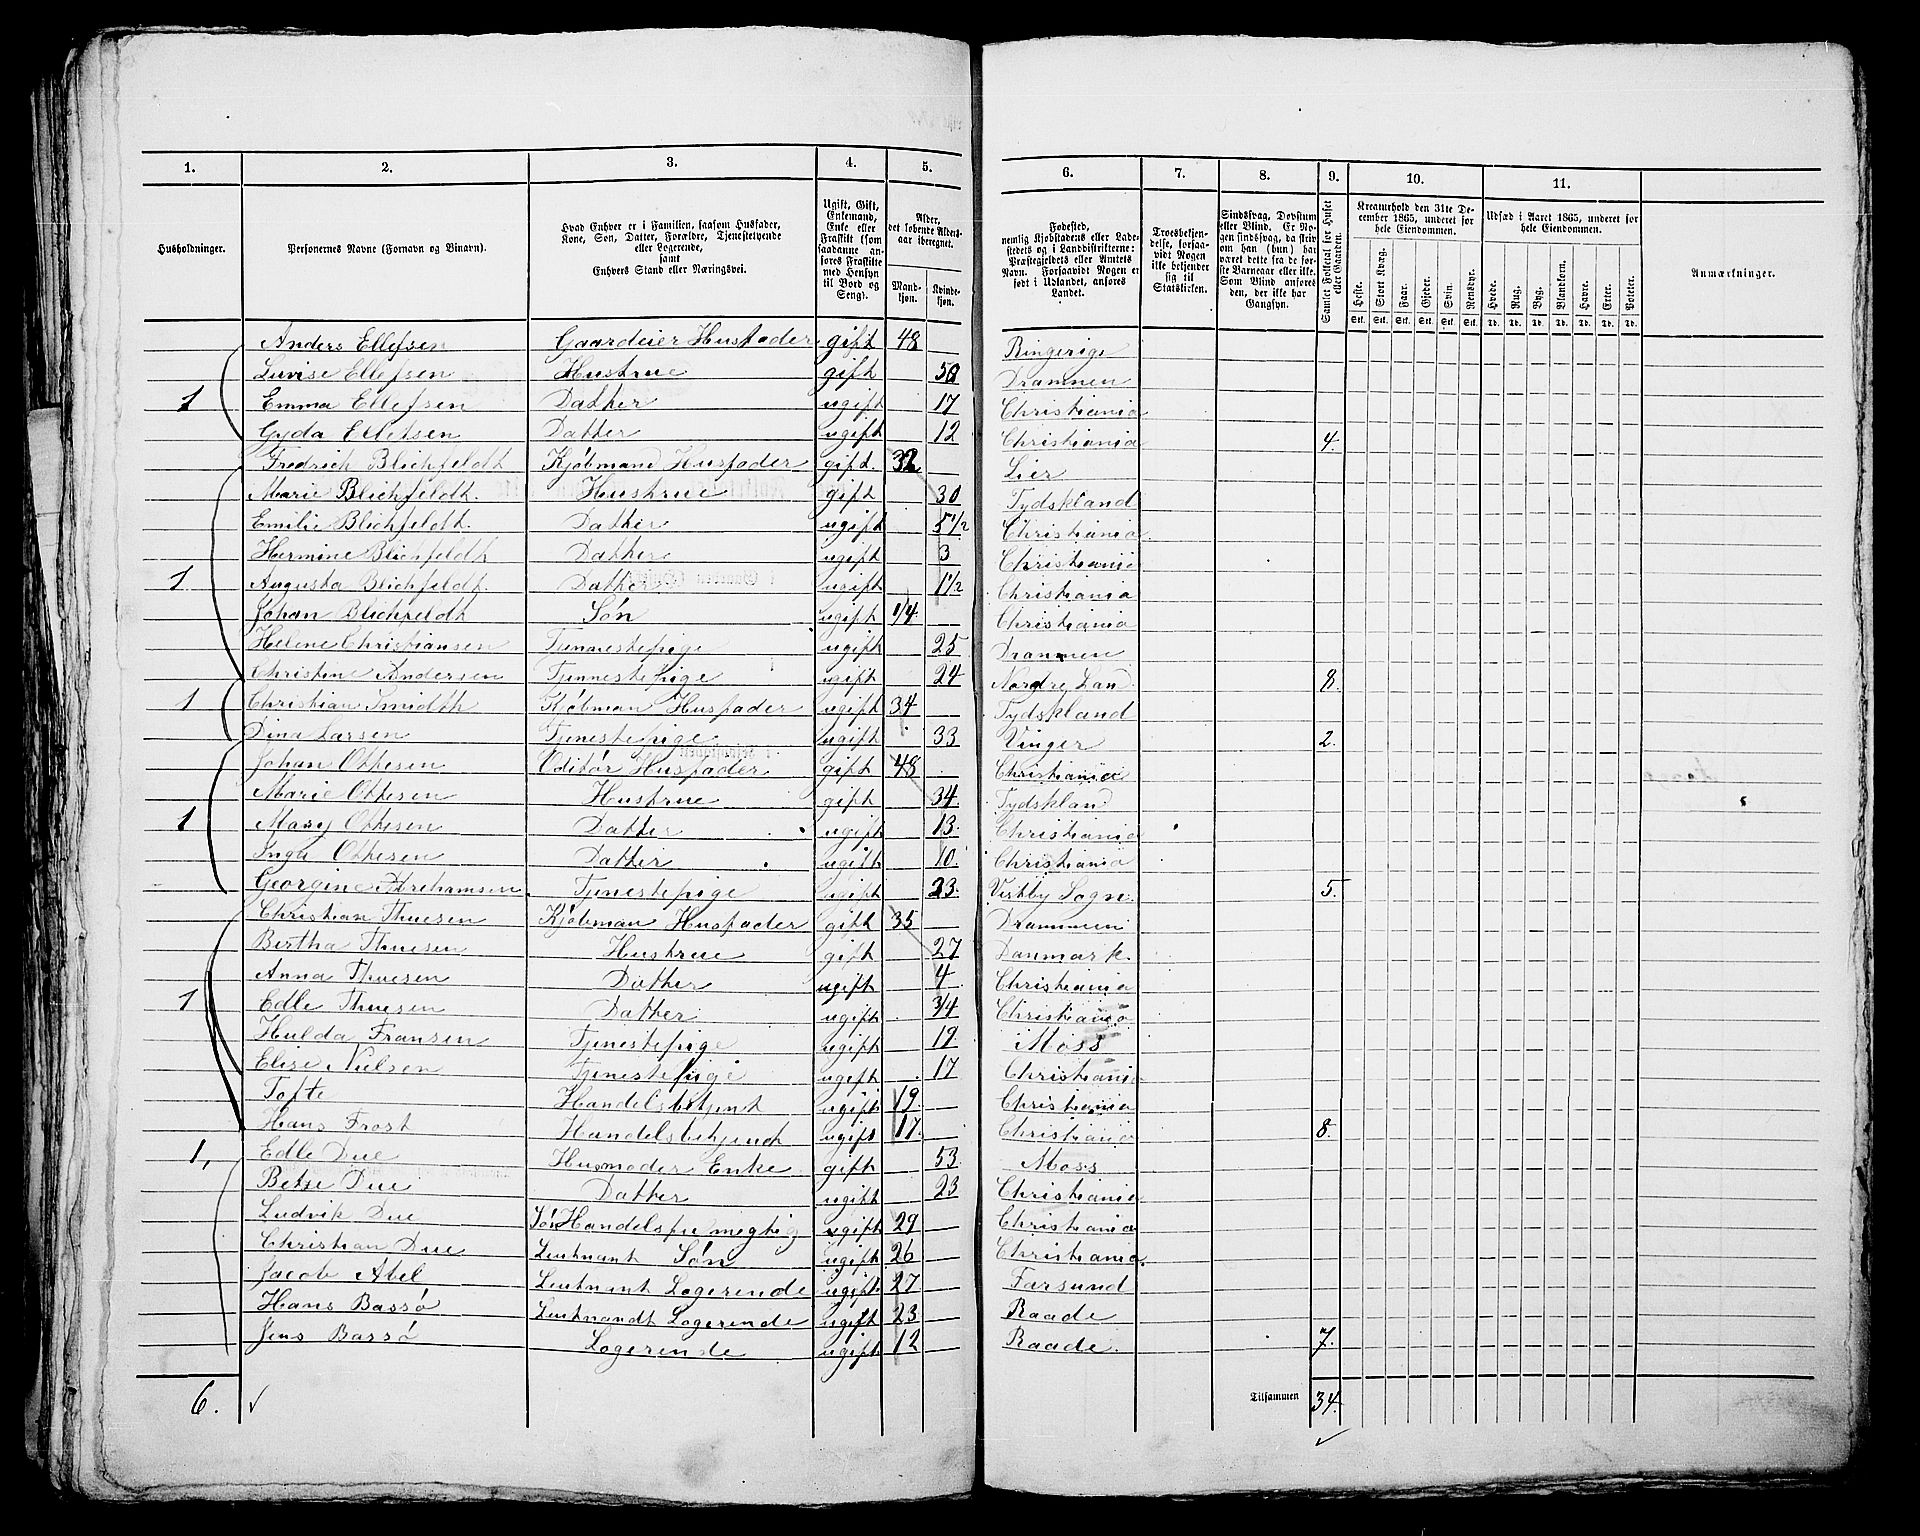 1. 2. 3. 4. 5. 6. 7. 8. 9. 10. 11.
Husholdninger.
Personernes Navne (Fornavn og Binavn).
Hvad Enhver er i Familien, saasom Husfader,
Kone, Søn, Datter, Forældre, Tjenestetyende
eller Logerende,
samt
Enhvers Stand eller Næringsvei.
Ugift, Gift,
Enkemand,
Enke eller
Fraskilt (som
saadanne an-
føres Fraskilte
med Hensyn
til Bord og
Seng).
Alder,
det løbende Alders-
aar iberegnet.
Mand-
kjøn.
Kvinde-
kjøn.
Fødested,
nemlig Kjøbstadens eller Lade-
stedets og i Landdistrikterne:
Præstegjeldets eller Amtets
Navn. Forsaavidt Nogen er
født i Udlandet, anføres
Landet.
Troesbekjen-
delse, forsaa-
vidt Nogen
ikke bekjender
sig til
Statskirken.
Sindssvag, Døvstum
eller Blind. Er No-
gen sindssvag, da skriv
om han (hun) har
været dette fra de før-
ste Barneaar eller ikke.
Som Blind anføres
den, der ikke har
Gangsyn.
Samlet Folketal for Huset
eller Gaarden.
Kreaturhold den 31te De-
cember 1865, underet for
hele Eiendommen.
Heste. Stort Kvæg. Faar. Gjeder. Svin. Rensdyr.
Stk. Stk. Stk. Stk. Stk. Stk.
Udsæd i Aaret 1865, underet for
hele Eiendommen.
Hvede. Rug. Byg. Blandkorn. Havre. Erter. Poteter.
Td. Td. Td. Td. Td. Td. Td.
Anmærkninger.
Anders Ellefsen Gaardeier Husfader gift 48 Ringerige
Lovise Ellefsen Hustrue gift 50 Drammen
1 Emma Ellefsen Datter ugift 17 Christiania
Gyda Ellefsen Datter ugift 12 Christiania 4.
Fredrich Blichfeldth Kjøbmand Husfader gift. 32 Lier
Marie Blichfeldth. Hustrue gift 30 Tydskland
Emilie Blichfeldth. Datter ugift 5 1/2 Christiania
Hermine Blichfeldth Datter ugift 3 Christiania
1 Augusta Blichfeldth. Datter ugift 1 1/2 Christiania
Johan Blichfeldth Søn ugift 1/4 Christiania
Helene Christiansen Tjennestepige ugift 25 Drammen
Christine Andersen Tjennestepige ugift 24 Nordre Land. 8.
1 Christian Smidth Kjøbman Husfader ugift 34 Tydskland
Dina Larsen Tjenestepige ugift 33 Vinger 2.
Johan Ottesen Oditør Husfader gift 48 Christiania
Marie Ottesen Hustrue gift 34 Tydskland
1 Mary Ottesen Datter ugift 13. Christiania
Inga Ottesen Datter ugift 10. Christiania
Georgine Abrehamsen Tjenestepige ugift 23. Vestby Sogn. 5.
Christian Thuesen Kjøbman Husfader gift 35 Drammen
Bertha Thuesen Hustrue gift 27 Danmark.
Anna Thuesen Datter ugift 4 Christiania
1 Edle Thuesen Datter ugift 3/4 Christiania
Hulda Fransen Tjenestepige ugift 19 Moss
Elise Nielsen Tjenestepige ugift 17 Christiania
Tofte Handelsbetjent ugift 19. Christiania
Hans Frost Handelsbetjendt ugift 17. Christiania 8.
1, Edle Due Husmoder Enke gift 53. Moss
Betse Due Datter ugift 23 Christiania
Ludvik Due Søn Handelsfumegtig ugift 29 Christiania
Christian Due Leutnant Søn ugift 26 Christiania.
Jacob Abel Leutnant Logerende ugift 27 Farsund
Hans Bassø Leutnandt Logerende ugift 23 Raade
Jens Bassø Logerende ugift 12 Raade. 7.
6. Tilsammen 34.